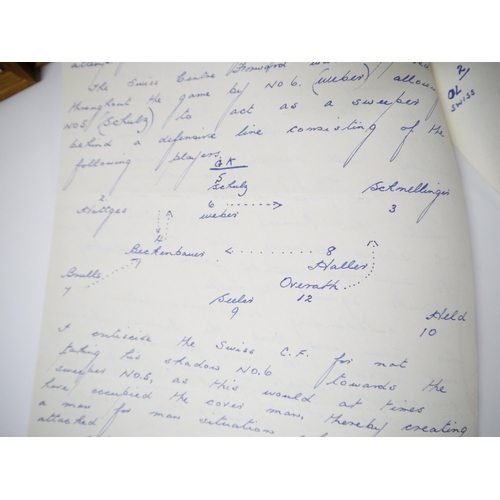 The Swiss Centre Forward
throughout the game by No 6. (weber)
No5 (Schulz) to act as a sweeper
behind a defensive line consisting of the
following players
GK
5
Schulz
Schnellinger
2
Hottges
6
weber
3
4
Beckenbauer
8
Haller
Brulls
7
Overath
12
Seeler
9
Held
10
I critiscise the Swiss C.F. for not
taking his shadow No.6 towards the
sweeper No.5, as this would at times
have occupied the cover man, thereby creating
a man for man situation
attacked
2/
OL
SWISS